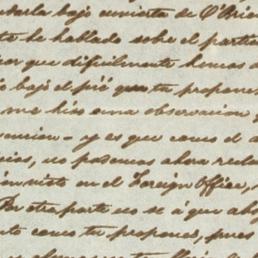 darla bajo cubierta de O'Brien
te he hablado sobre el partic
er que dificilmente hemos d
o bajo el pié que tu propones
me hizo una observacion q
encion - y es que como el d
cios, no podemos ahora recla
en visto en el Foreign Office,
Por otra parte no sé á que abo
arte como tu propones, pues